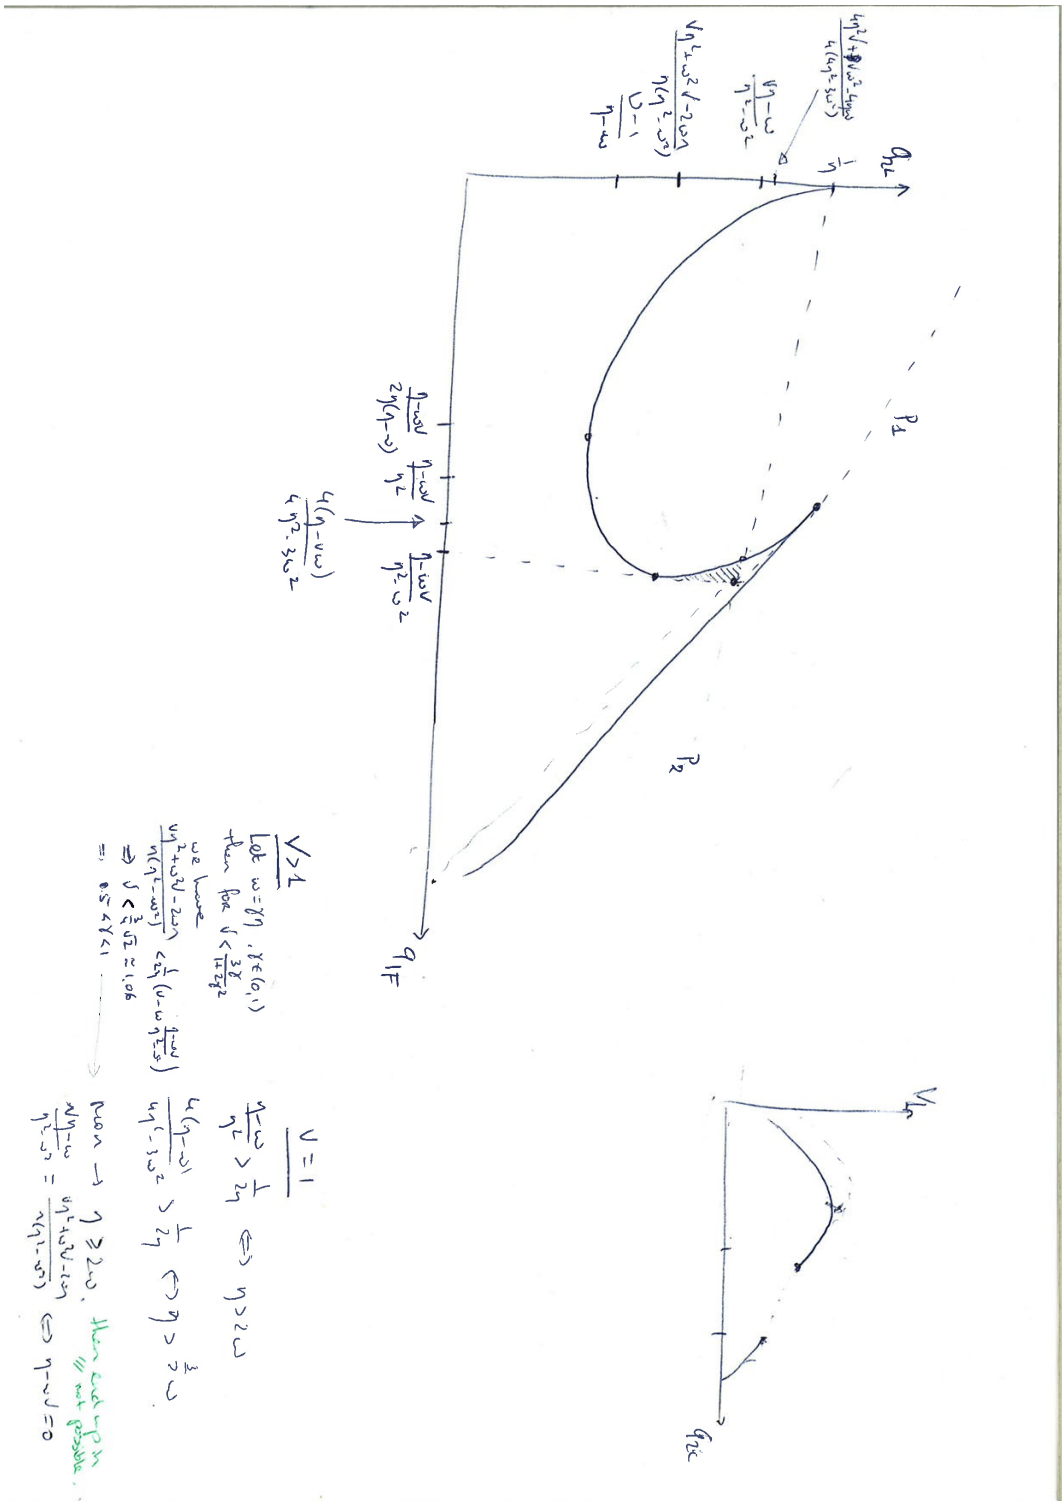 q2L
1/η
(4η²V + Vω² - 4ηω)/(4(4η² - 3ω²))
(Vη - ω)/(η² - ω²)
(Vη² + ω²V - 2ωη)/(η(η² - ω²))
(V - 1)/(η - ω)
P1
P2
(η - ωV)/(2η(η - ω))
(η - ωV)/η²
4(η - Vω)/(4η² - 3ω²)
(η - ωV)/(η² - ω²)
q1F
V>1
Let ω = γη, γ∈(0,1)
then for V < 3γ/(1+2γ²)
we have
(Vη² + ω²V - 2ωη)/(η(η² - ω²)) < 1/2η (V - ω (η - ωV)/(η² - ω²))
⇒ V < 3/4 √2 ≃ 1.06
⇒ 0.5 < γ < 1
VL
q2L
V = 1
(η - ω)/η² > 1/2η ⇔ η > 2ω
4(η - ω)/(4η² - 3ω²) > 1/2η ⇔ η > 3/2 ω.
→ η ≥ 2ω. then end up in
" not possible.
(Vη - ω)/(η² - ω²) = (Vη² + ω²V - 2ωη)/(η(η² - ω²)) ⇔ η - ωV = 0